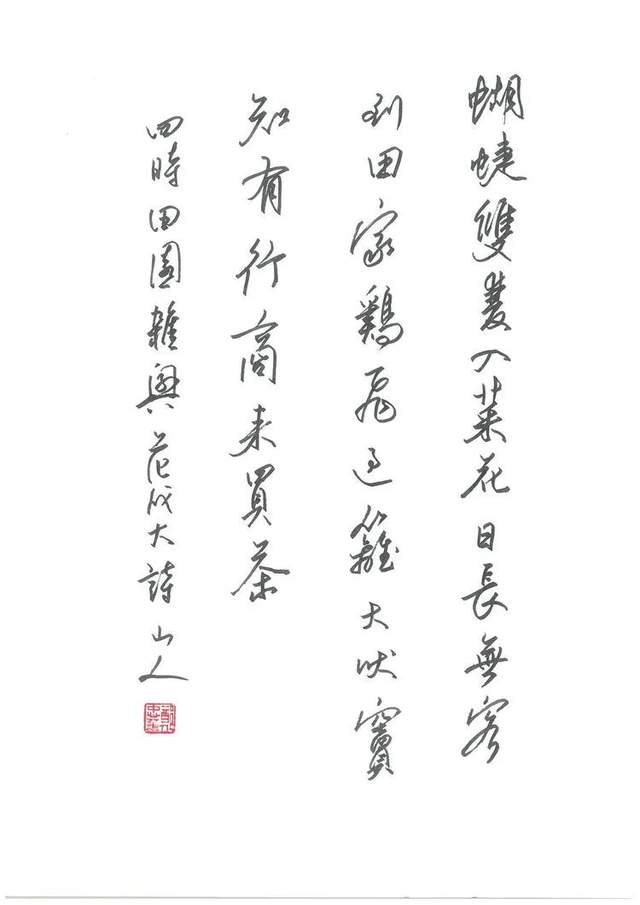 蝴蜨雙雙入菜花日長無客
到田家鷄飛過籬犬吠竇
知有行商來買茶
四時田園雜興范成大詩山人